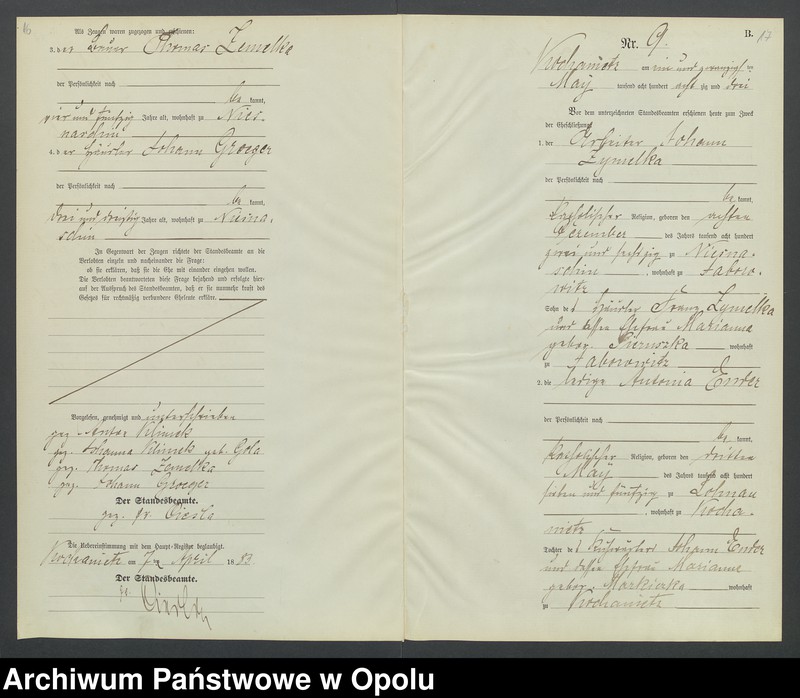 16
Als Zeugen waren zugezogen und erschienen:
3. der Bauer Thomas Zemelka
der Persönlichkeit nach
be kannt,
vier und fünfzig Jahre alt, wohnhaft zu Nies-
naschin
4. der Häusler Johann Groeger
der Persönlichkeit nach
be kannt,
drei und dreißig Jahre alt, wohnhaft zu Niesna-
schin
In Gegenwart der Zeugen richtete der Standesbeamte an die
Verlobten einzeln und nacheinander die Frage:
ob sie erklären, daß sie die Ehe mit einander eingehen wollen.
Die Verlobten beantworteten diese Frage bejahend und erfolgte hier-
auf der Ausspruch des Standesbeamten, daß er sie nunmehr kraft des
Gesetzes für rechtmäßig verbundene Eheleute erkläre.
Vorgelesen, genehmigt und unterschrieben
gez. Anton Klimek
gez. Johanna Klimek geb. Gola
gez. Thomas Zemelka
gez. Johann Groeger
Der Standesbeamte.
gez. Fr.
Die Uebereinstimmung mit dem Haupt-Register beglaubigt.
am April 1883
Der Standesbeamte.
B. 17
Nr. 9.
am ein und zwanzigsten
May tausend acht hundert acht zig und drei
Vor dem unterzeichneten Standesbeamten erschienen heute zum Zweck
der Eheschließung
1. der Arbeiter Johann
Zymelka
der Persönlichkeit nach
be kannt,
katholischer Religion, geboren den achten
Dezember des Jahres tausend acht hundert
zwei und sechszig zu Niesna-
schin, wohnhaft zu Jabore-
witz
Sohn des Häusler Franz Zymelka
und dessen Ehefrau Marianna
gebor. wohnhaft
zu Jaborowitz
2. die ledige Antonia Ender
der Persönlichkeit nach
be kannt,
katholischer Religion, geboren den dritten
May des Jahres tausend acht hundert
sieben und fünfzig zu Lohnau
, wohnhaft zu
Tochter des Johann Ender
und dessen Ehefrau Marianna
gebor. wohnhaft
zu
Archiwum Państwowe w Opolu